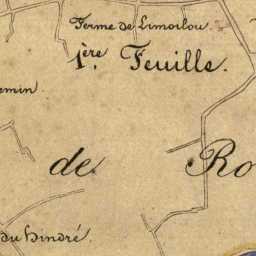 Ferme de Limoilou
1ère Feuille.
emin
de Ro
du Hindré.